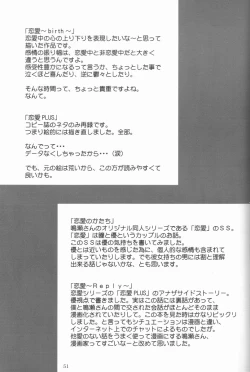 「恋愛～birth～」
恋愛中の心の上り下りを表現したいな～と思って
描いた作品です。
感情の振り幅は、恋愛中と非恋愛中だと大きく
違うと思うんですよ。
感受性豊かになるって言うか、ちょっとした事で
泣くほど喜んだり、逆に鬱々としたり。
そんな時間って、ちょっと貴重ですよね。
なんて。
「恋愛PLUS」
コピー誌のネタのみ再録です。
つまり絵的には描き直しました。全部。
なんでって・・・
データなくしちゃったから・・・（涙）
でも、元の絵は荒いから、この方が読みやすくて
良いかも。
「恋愛のかたち」
鳴瀬さんのオリジナル同人シリーズである「恋愛」のSS。
「恋愛」は瞳と優というカップルのお話。
このSSは優の気持ちを書いてみました。
優とは近いものを感じた為に、個人的な感情も含まれて
しまっていたりします。でも彼女持ちの男には割と理解
出来る話じゃないかな、とも思います。
「恋愛～Reply～」
恋愛シリーズの「恋愛PLUS」のアナザサイドストーリー。
優視点で書きました。実はこの話には裏話があって、
僕と鳴瀬さんの間で交わされた会話がほとんどそのまま
漫画化されていたりして、この本を見た時はかなりビックリ
しました。と言ってもシチュエーションは漫画と違い、
インターネット上でのチャットによるものでしたが。
他愛のない話をうまく使って漫画にする鳴瀬さん、
漫画家ってすごいなーと改めて思いました。
51